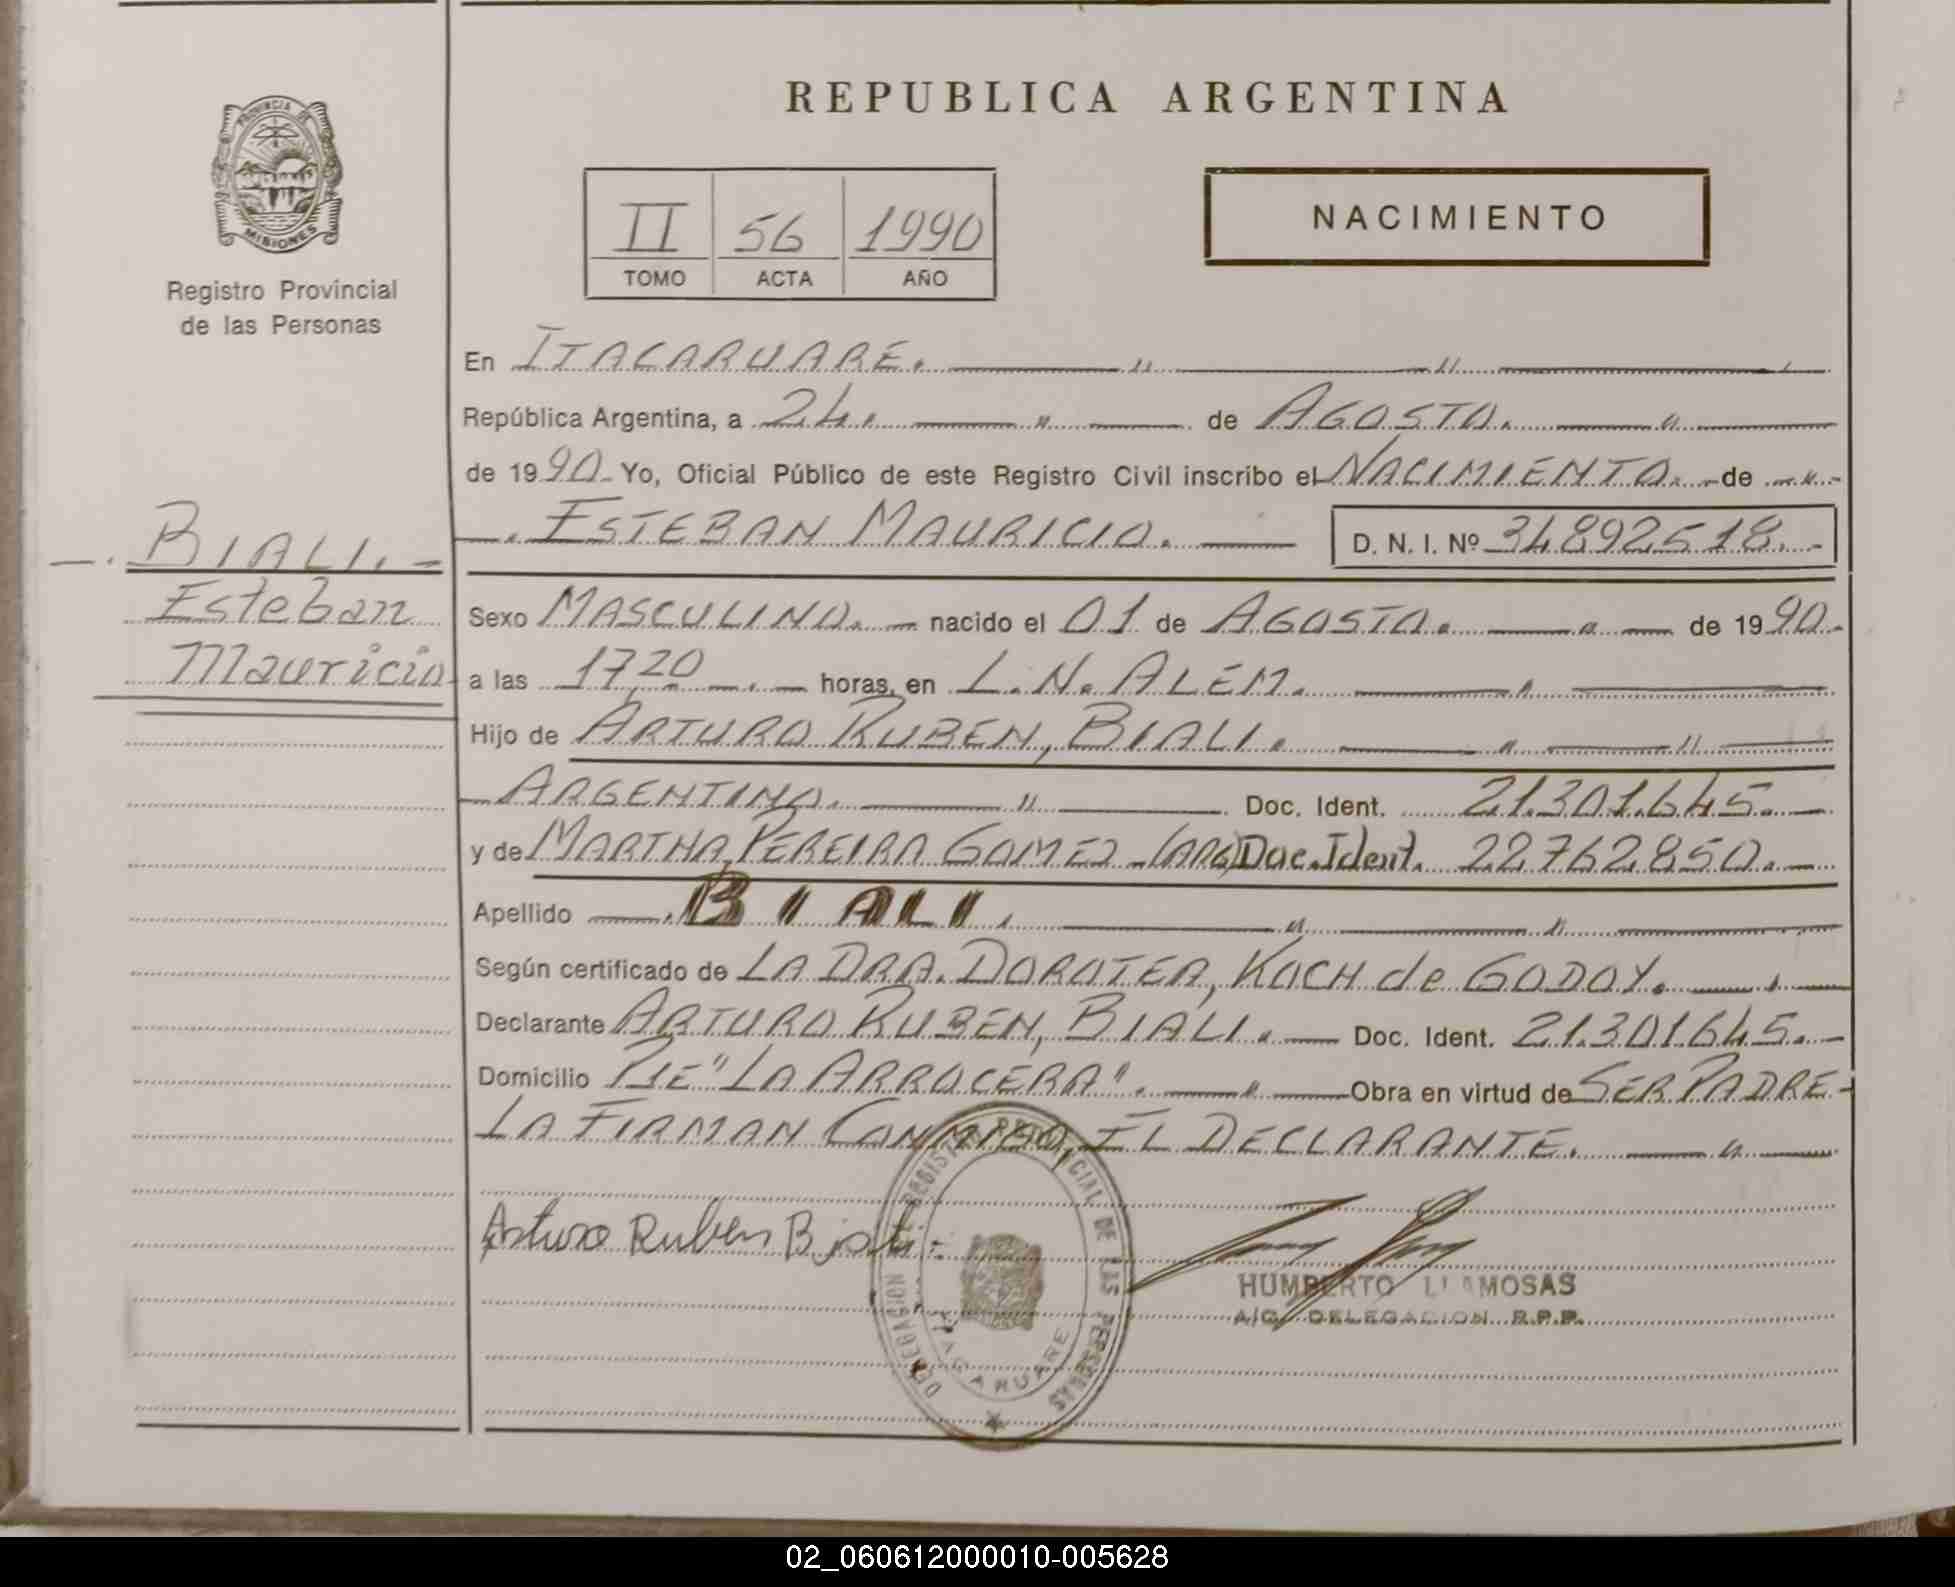 REPUBLICA ARGENTINA
PROVINCIA DE
MISIONES
Registro Provincial
de las Personas
II 56 1990
TOMO ACTA AÑO
NACIMIENTO
BIALI.-
Esteban
Mauricio
En ITACARUARE.
República Argentina, a 24. de AGOSTO.
de 1990- Yo, Oficial Público de este Registro Civil inscribo el NACIMIENTO. de
ESTEBAN MAURICIO. D. N. I. Nº 34892518.-
Sexo MASCULINO. nacido el 01 de AGOSTO. de 1990.-
a las 17,20 horas, en L.N. ALEM.
Hijo de ARTURO RUBEN, BIALI.
ARGENTINO. Doc. Ident. 21.301.645.-
y de MARTHA, PEREIRA GOMEZ -(ARG) Doc. Ident. 22762850.-
Apellido BIALI.
Según certificado de LA DRA. DOROTEA, KOCH de GODOY.
Declarante ARTURO RUBEN, BIALI. Doc. Ident. 21.301645.-
Domicilio PJE "LA ARROCERA". Obra en virtud de SER PADRE-
LA FIRMAN CONMIGO, EL DECLARANTE.
Arturo Ruben Biali
DELEGACION REGISTRO PROVINCIAL DE LAS PERSONAS
ITACARUARE
HUMBERTO LLAMOSAS
A/C. DELEGACION R.P.P.
02_060612000010-005628